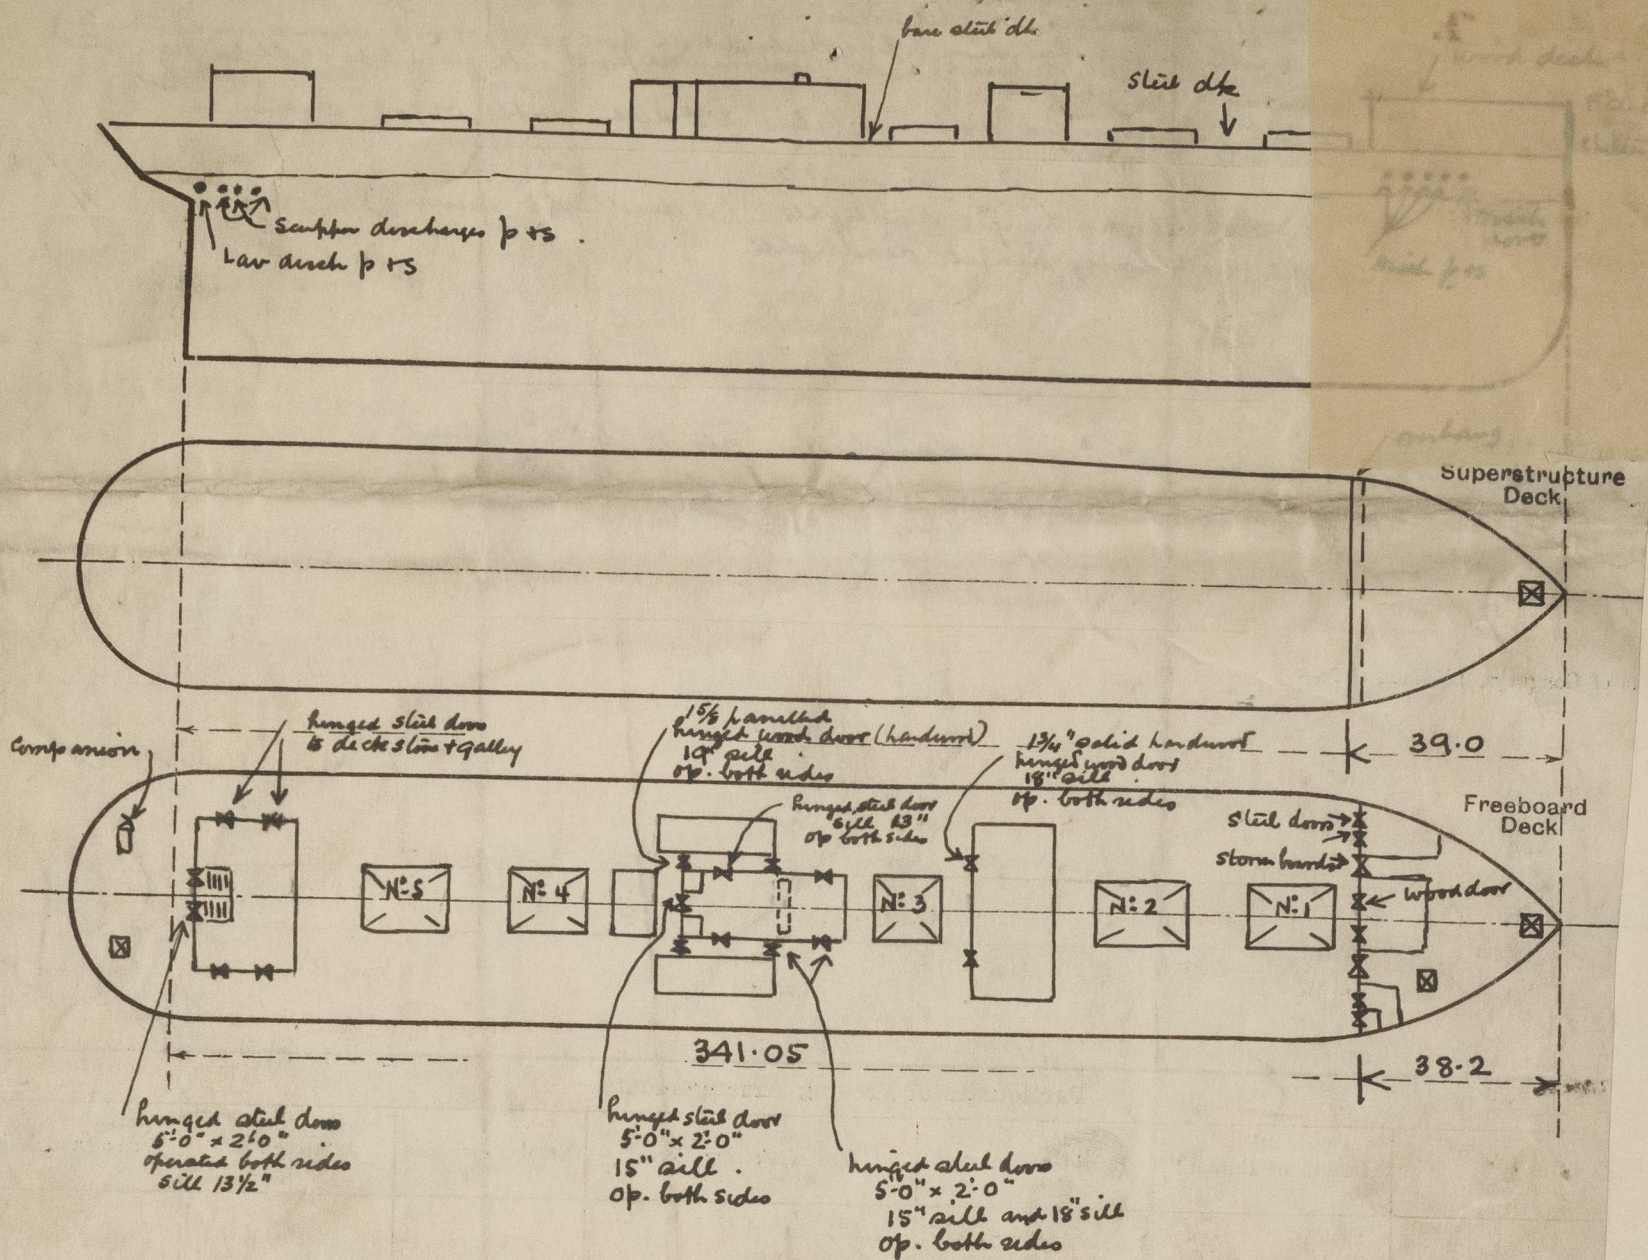 bare steel dk
steel dk
wood deck
scupper discharges p + s .
Lav disch p + s
disch p + s
overhang
Superstructure
Deck
Companion
hinged steel doors
to deck store + galley
1 5/8 panelled
hinged wood door (hardwood)
19" sill
op. both sides
1 3/4" solid hardwood
hinged wood door
18" sill
op. both sides
39.0
hinged steel door
sill 13"
op both sides
Freeboard
Deck
steel doors
storm boards
wood door
Nº 5
Nº 4
Nº 3
Nº 2
Nº 1
341.05
38.2
hinged steel doors
5'-0" x 2'-0"
operated both sides
sill 13 1/2"
hinged steel door
5'-0" x 2'-0"
15" sill .
op. both sides
hinged steel doors
5'-0" x 2'-0"
15" sill and 18" sill
op. both sides